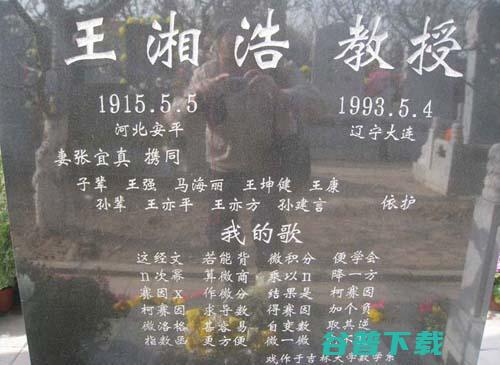 王湘浩 教授
1915.5.5 1993.5.4
河北安平 辽宁大连
妻张宜真 携同
子辈 王强 马海丽 王坤健 王康
孙辈 王亦平 王亦方 孙建言 依护
我的歌
这经文 若能背 微积分 便学会
n次幂 算微商 乘以n 降一方
赛因x 作微分 结果是 柯赛因
柯赛因 求导数 得赛因 加个负
微洛格 甚容易 自变数 取其逆
指数函 更方便 微一微
戏作于吉林大学数学系
谷普下载